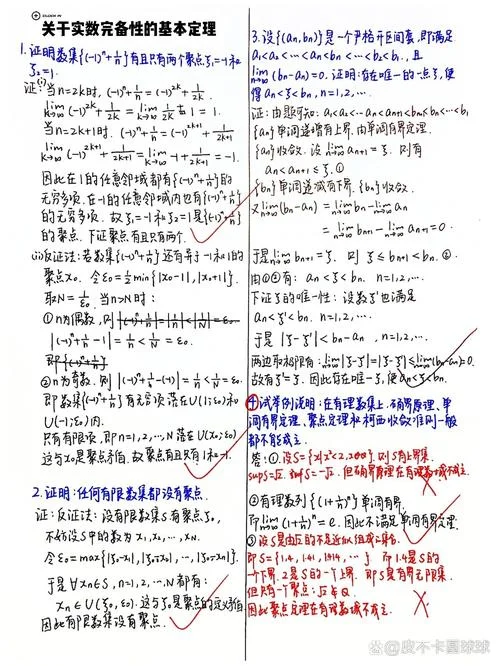 关于实数完备性的基本定理
1.证明数集{(-1)ⁿ+1/n}有且只有两个聚点ξ₁=-1和
ξ₂=1.
证:(i)当n=2k时, (-1)ⁿ+1/n=(-1)^{2k}+1/2k.
当n=2k+1时, (-1)ⁿ+1/n=(-1)^{2k+1}+1/(2k+1)
lim_{k→∞}(-1)^{2k+1}+1/(2k+1)=lim_{k→∞}-1+1/(2k+1)=-1.
因此在1的任意邻域都有{(-1)ⁿ+1/n}的
无穷多项. 在-1的任意邻域内也有{(-1)ⁿ+1/n}
的无穷多项. 故ξ₁=-1和ξ₂=1是{(-1)ⁿ+1/n}
的聚点. 下证聚点有且只有两个.
(ii)反证法:若数集{(-1)ⁿ+1/n}还有异于-1和1的
聚点x₀. 令ε₀=1/2min{|x₀-1|,|x₀+1|}.
取N=1/ε₀. 当n>N时:
①n为偶数,则
|(-1)ⁿ+1/n-1|=1/n<1/N=ε₀.
②n为奇数. 则|(-1)ⁿ+1/n-(-1)|=1/n<1/N=ε₀.
即数集{(-1)ⁿ+1/n}有无穷项落在U(1;ε₀)和
U(-1;ε₀)内.
只有有限项,即n=1,2,…,N落在U(x₀;ε₀)
这与x₀是聚点矛盾. 故聚点有且只有1和-1.
2.证明:任何有限数集都没有聚点.
证:反证法:设有限数集S有聚点ξ₀,
不妨设S中的数为x₁,x₂,…,x_N.
令ε₀=max{|ξ₀-x₁|,|ξ₀-x₂|,…,|ξ₀-x_N|}.
于是∀xₙ∈S,n=1,2,…,N都有:
xₙ∈U(ξ₀,ε₀). 这与ξ₀是聚点的定义矛盾.
因此有限数集没有聚点.
3.设{(aₙ,bₙ)}是一个严格开区间套,即满足
a₁<a₂<…<aₙ<bₙ<…<b₂<b₁,且
lim_{n→∞}(bₙ-aₙ)=0. 证明:存在唯一的一点ξ,使
得aₙ<ξ<bₙ,n=1,2,….
证:由题可知:a₁<a₂<…aₙ<aₙ₊₁<bₙ<bₙ<…<b₁
{aₙ}单调递增有上界. 由单调有界定理,
{aₙ}收敛. 设lim_{n→∞}aₙ₊₁=ξ. 则有
aₙ<aₙ₊₁≤ξ. ①
{bₙ}单调递减有下界. {bₙ}收敛.
又lim_{n→∞}(bₙ-aₙ)=lim_{n→∞}bₙ-lim_{n→∞}aₙ
=lim_{n→∞}bₙ₊₁-lim_{n→∞}aₙ₊₁=0.
于是lim_{n→∞}bₙ₊₁=ξ. 则ξ≤bₙ₊₁<bₙ.②.
由①②有:aₙ<ξ<bₙ. n=1,2,….
下证ξ的唯一性:设数ξ'也满足
aₙ<ξ'<bₙ. n=1,2,….
于是|ξ-ξ'|<bₙ-aₙ,n=1,2,….
两边取极限有:lim_{n→∞}|ξ-ξ'|=|ξ-ξ'|≤lim_{n→∞}(bₙ-aₙ)=0.
故有ξ'=ξ. 因此存在唯一ξ,使aₙ<ξ<bₙ.
④试举例说明:在有理数集上,确界原理、单
调有界定理、聚点定理和柯西收敛准则一般
都不能成立.
supS=√2. infS=-√2. 但确界原理在有理数域不成立.
②有理数列{(1+1/n)ⁿ}单调有界.
即lim_{n→∞}(1+1/n)ⁿ=e. 因此不满足单调有界定理.
③设S是由√2的不足近似组成之集合
即S={1.4,1.41,1.414,…}. 即1.4是S的
一个下界. 2是S的一个上界. 即S是有界无限集.
但只有一个聚点:√2∉Q.
因此聚点定理在有理数域不成立.
@皮不卡圆球球